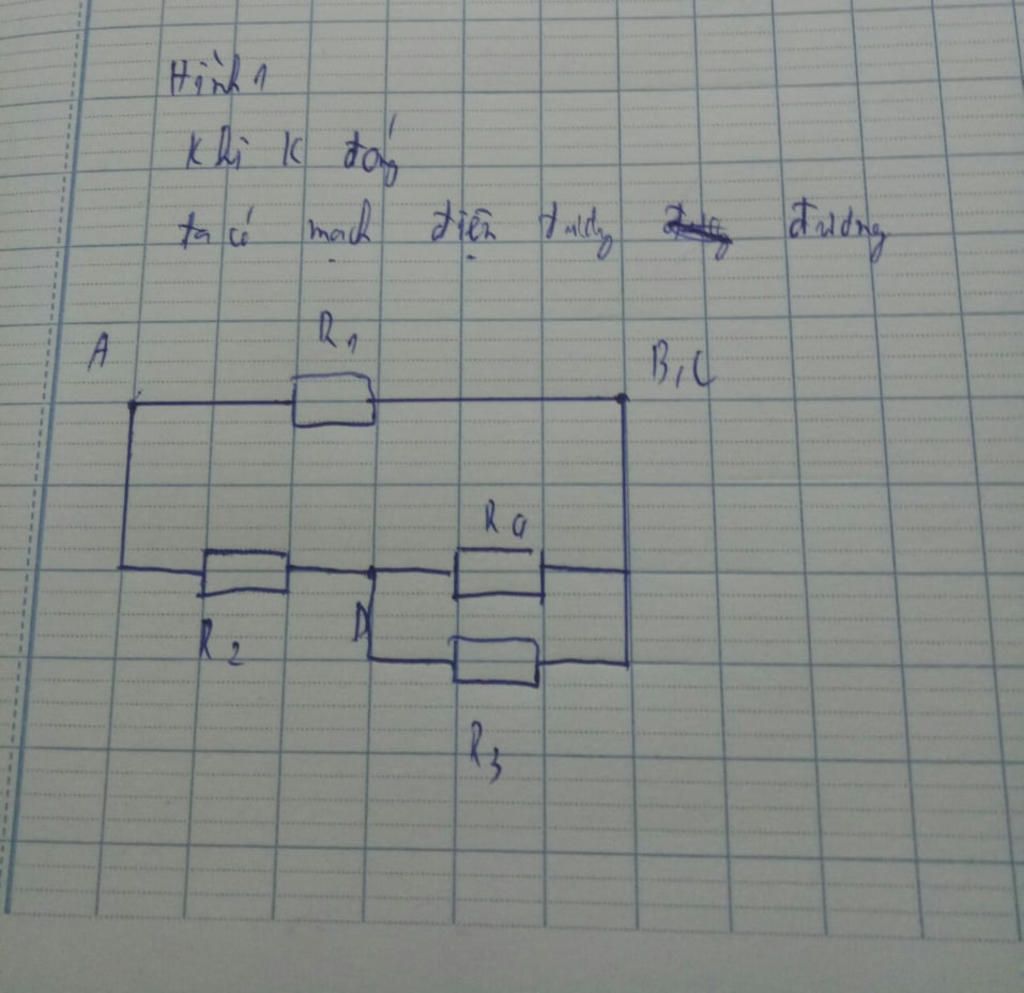 Hình 1
Khi K đóng
ta có mạch điện tương đương
A
R1
B,C
R4
D
R2
R3